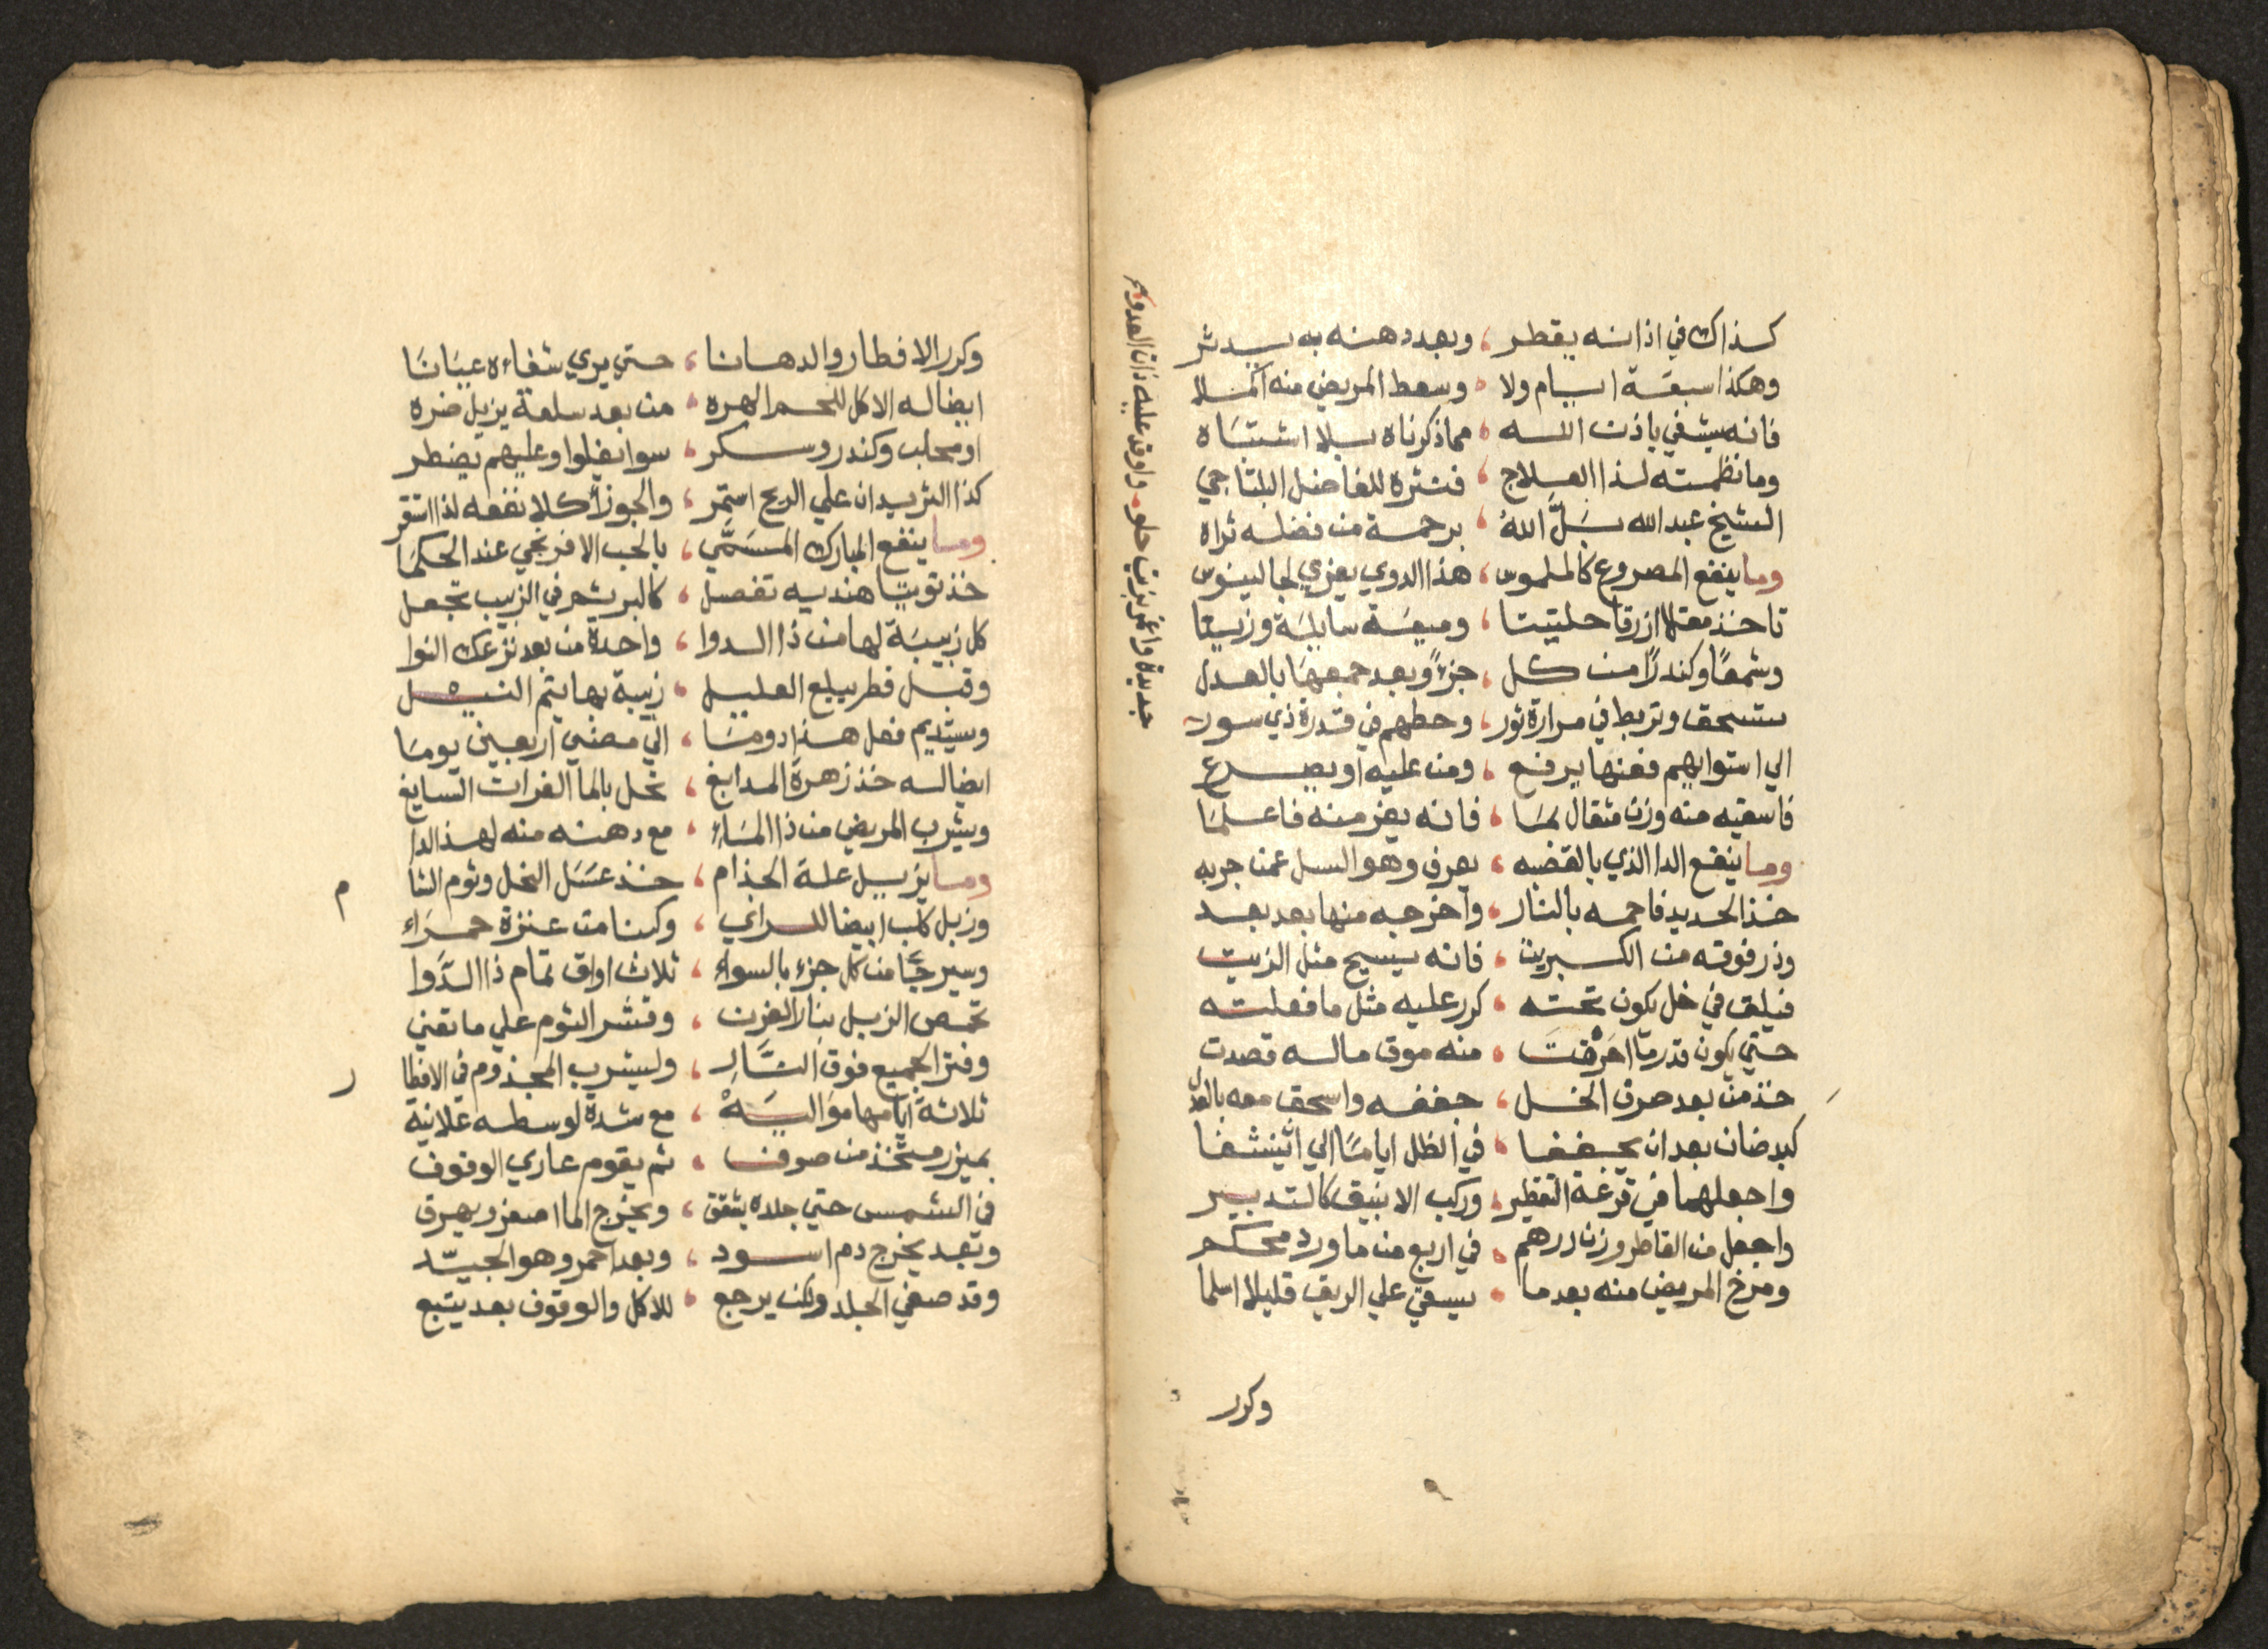 كذاك في اذانه يقطر ، وبعد دهنه به يدثر
وهكذا سبعة ايام ولا ، وسعط المريض منه اكملا
فانه يشفي باذن الله ، مما ذكرناه بلا اشتباه
وما نظمته لذا العلاج ، فنثره للفاضل البلتاجي
الشيخ عبد الله بَلَّ اللهُ ، برحمة من فضله ثراه
وما ينفع المصروع كالملموس ، هذا الدوي يعزي لجالينوس
تاخذ مقلا ازرقا حلتيتا ، وميعة سايلة وزيتا
وشمعًا وكندرًا من كل ، جزءً وبعد جمعها بالعدل
ستسحق وتربط في مرارة ثور ، وحطهم في قدرة ذي سور
الي استوايهم فعنها يرفع ، ومن عليه او يصرع
فاسقيه منه وزن مثقال لما ، فانه يفز منه فاعلما
وما ينفع الدا الذي بالقضبه ، يعرف وهو السل عمن جربه
خذ الحديد فاحمه بالنار ، واخرجه منها بعد بعد
وذر فوقه من الكبريت ، فانه يسيح مثل الزيت
فيلق في خل يكون تحته ، كرر عليه مثل ما فعلته
حتي يكون قدر ما احرقت ، منه موق ماله قصدت
خذ من بعد حرق الخل ، جففه واسحق معه بالعدل
كبد ضان بعد ان يجففا ، في الظل اياما الي ان ينشفا
واجعلهما في قرعة التقطير ، وركب الانبيق كالتدبير
واجعل من القاطر وزن درهم ، في اربع من ماورد محكم
ومرخ المريض منه بعد ما ، يسقي علي الريق قليلا اسلما
وكرر
جديدة واغمر بزيت حلو ، واوقد عليه ذات العدو
وكرر الافطار والدهانا ، حتي يري شفاءه عيانا
ايضا له الاكل للحم الهره ، من بعد سلعة يزيل ضره
او محلب وكندر وسكر ، سوا يغلوا وعليهم يفطر
كذا الثريد ان علي الريح استمر ، والجوز أكلا نفعه لذا استقر
وما ينفع المبارك المسَمَّي ، بالحب الافرنجي عند الحكما
خذ توتيا هنديه تفصل ، كالبر يشر في الزبيب تجعل
كل زبيبة لها من ذا الدوا ، واحدة من بعد نزعك النوا
وقبل فطر يبلع العليل ، زبيبة بها يتم النيل
ويستديم فعل هذا دوما ، الي مضي اربعين يوما
ايضا له خذ زهرة المدابغ ، تحل بالما الفرات السايغ
ويشرب المريض من ذا الماء ، مع دهنه منه لهذا الدا
وما يزيل علة الجذام ، خذ عسَل النحل وثوم الشا م
وزبل كلب ابيضا للراني ، وكبنا من عنزة حمراء
وسيرجًا من كل جزء بالسواء ، ثلاث اواق تمام ذا الدَّوا
تحمص الزبل بنار الفرن ، وقشر الثوم علي ما تقني
وفتر الجميع فوق النَّار ، وليشرب المجذوم في الافطا ر
ثلاثة ايامها مواليَهْ ، مع شدة لوسطه علانية
بميزر متخذ من صوف ، ثم يقوم عاري الوقوف
في الشمس حتي جلده يشقق ، ويخرج الما اصفر ويعرق
وبعد يخرج دم اسود ، وبعد احمر وهو الجيّد
وقد صفي الجلد ولكن يرجع ، للاكل والوقوف بعد يتبع